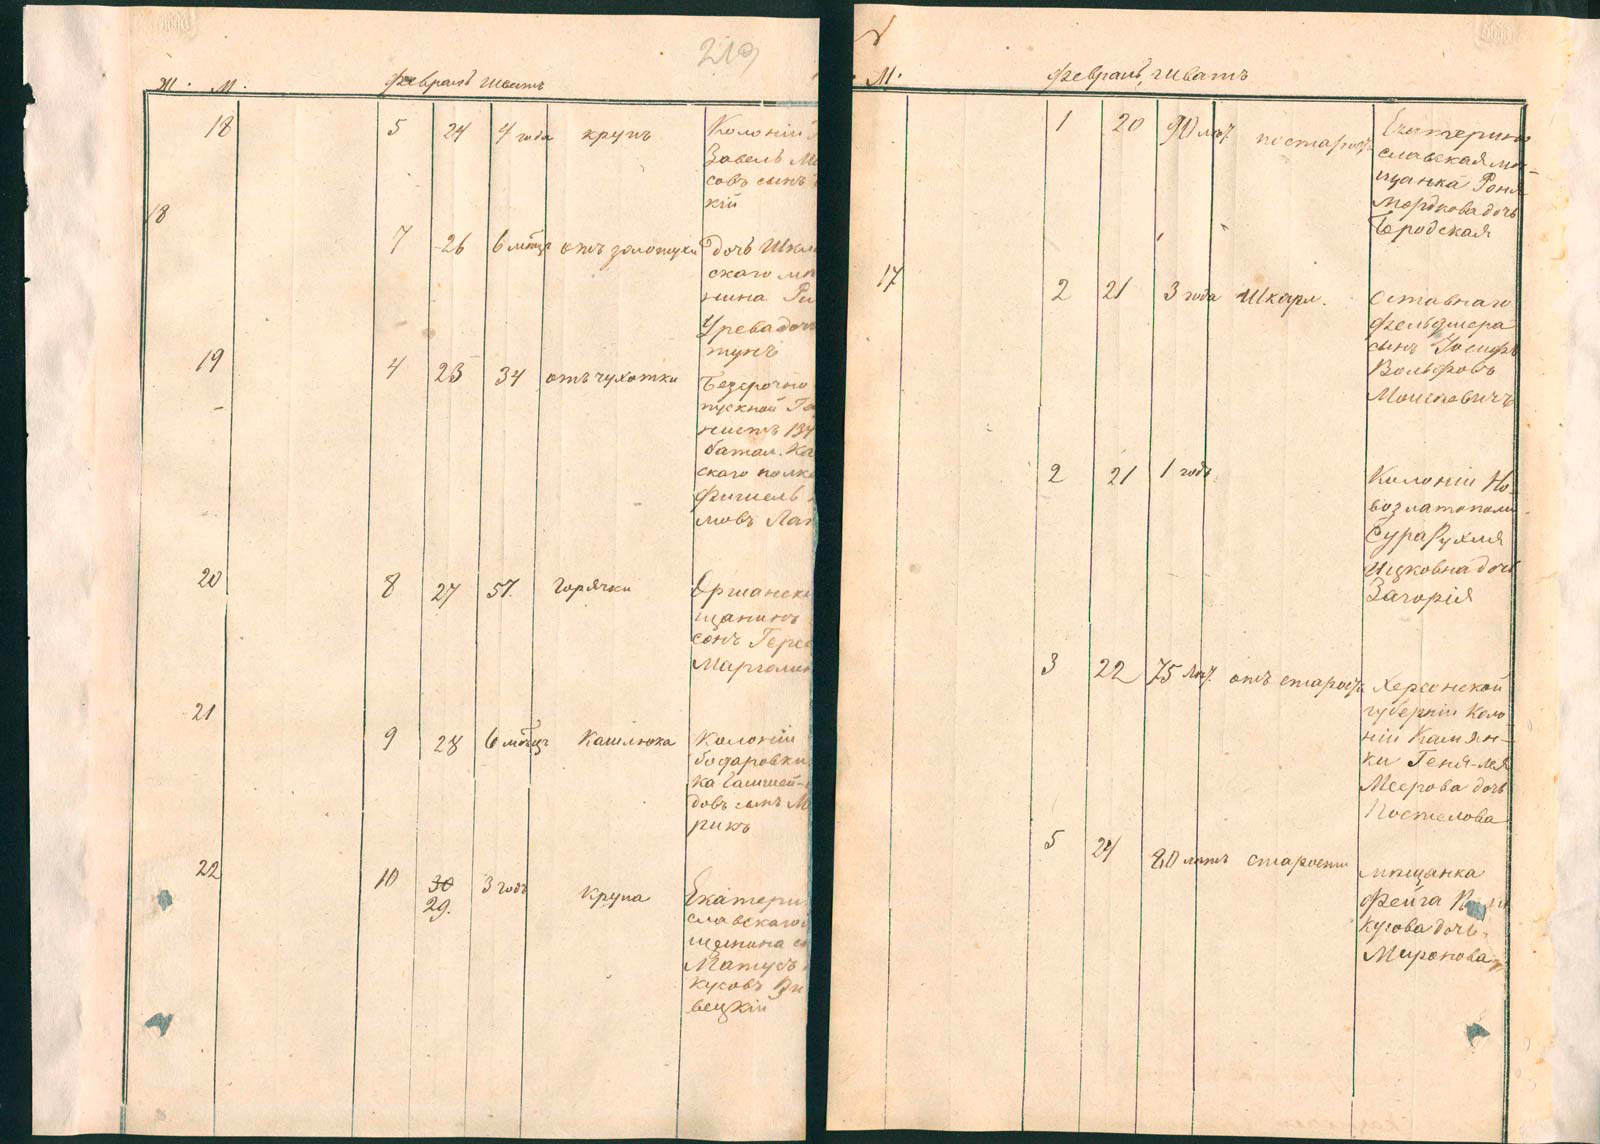 219
Ж. М. Февраль Шватъ
18 5 24 4 года крупъ Колоніи
Завель
совъ сынъ
кій
18 7 26 6 мѣсц отъ золотухи дочь
скаго
нина
Урева доч
тунъ
19 4 23 34 отъ чухотки Безсрочно
пускной
нистъ 134
батал.
скаго полка
Фишель
мовъ
20 8 27 57. горячки Оршанск
щанинъ
сонъ Герс
Марголин
21 9 28 6 мѣсц Кашлюка Колоніи
бодаровки
ка
довъ сынъ М
рикъ
22 10 30 3 годъ крупа Екатери
29. славскаго
щанина
Матусъ
кусовъ
вецкій
М. Февраль, Шватъ
1 20 90 лѣт. по старост Екатерино
славская мѣ
щанка Роня
Мордкова дочь
Бродская
17 2 21 3 года Шкарл. Отставнаго
фельдшера
сынъ Іосифъ
Вольфовъ
Моисеовичъ
2 21 1 годъ Колоніи Но-
возлатополи
Сура Рухля
Ицковна дочь
Загорія
3 22 75 лѣт. отъ старост Херсонской
губерніи Коло-
ніи Камян-
ки Геня-Лея
Меерова дочь
Постелова
5 24 80 летъ старости мѣщанка
Фейга
кусова дочь
Миронова